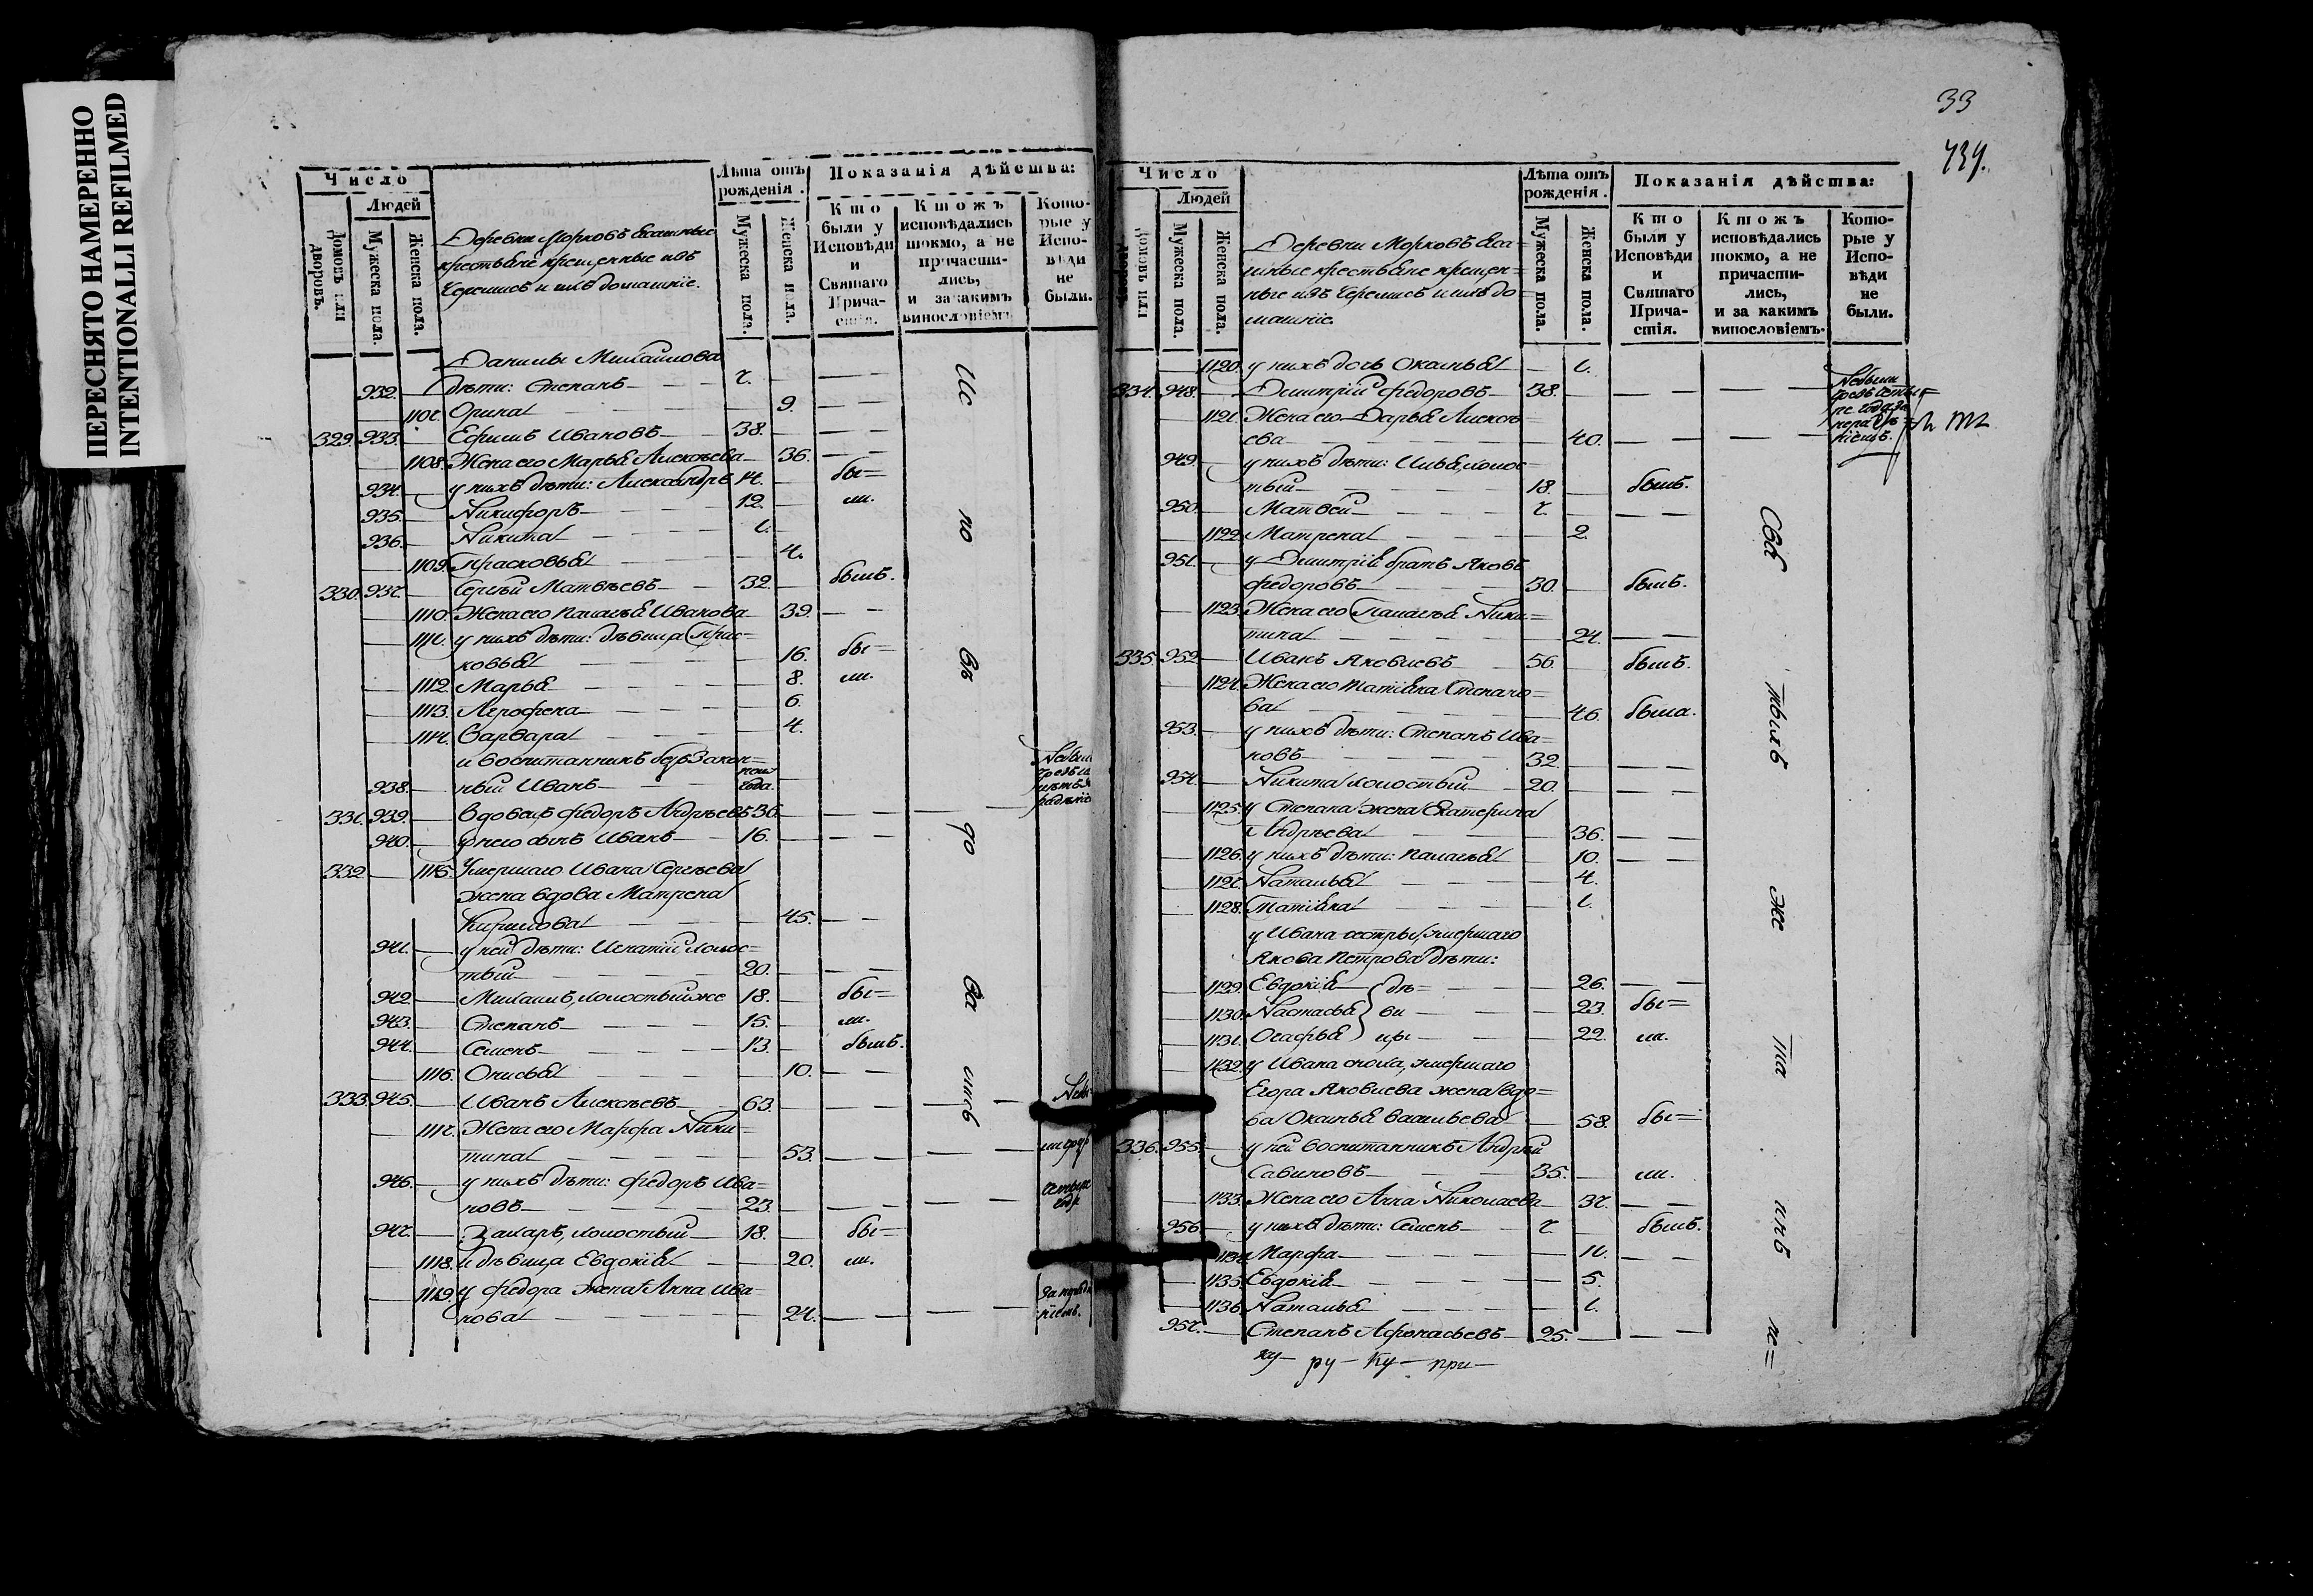 ПЕРЕСНЯТО НАМЕРЕННО
INTENTIONALLI REFILMED
Число
Людей
Домовъ или дворовъ.
Мужеска пола.
Женска пола.
Деревни Морковъ ясашные
крестьянѣ крещенные изъ
Черемисъ и ихъ домашніе.
Лѣта отъ рожденія.
Мужеска пола.
Женска пола.
Показанія дѣйства:
Кто были у Исповѣди и Святаго Прича-стія.
Ктожъ исповѣдались токмо, а не причасти-лись, и за какимъ винословіемъ
Кото-рые у Испо-вѣди не были.
Данилы Михайлова
932. дѣти: Степанъ 7.
1107. Орина 9.
329. 933. Ефимъ Ивановъ 38.
1108. Жена его Марья Алексѣева 36.
934. у нихъ дѣти: Александръ 14. бы=
935. Никифоръ 12. ли.
936. Никита 1.
1109. Прасковья 4.
330. 937. Сергѣй Матвѣевъ 32. былъ.
1110. Жена его Палагѣя Иванова 39.
1111. у нихъ дѣти: дѣвица Прас=
ковья 16. бы=
1112. Марья 8. ли.
1113. Агрофена 6.
1114. Варвара 4.
и воспитанникъ безъ закон=
938. ный Иванъ полъ года.
331. 939. Вдовецъ Федоръ Андрѣевъ 36.
940. у него сынъ Иванъ 16.
332. 1115. Умершаго Ивана Сергѣева
жена вдова Матрена
Кирилова 45.
941. у ней дѣти: Игнатій холос=
тый 20.
942. Михаилъ, холостыйже 18. бы=
943. Степанъ 15. ли.
944. Семенъ 13. былъ.
1116. Онисья 10.
333. 945. Иванъ Алексѣевъ 63.
1117. Жена его Марфа Ники=
тина 53.
946. у нихъ дѣти: Федоръ Ива=
новъ 23.
947. Захаръ, холостый 18. бы=
1118. и дѣвица Евдокія 20. ли.
1119. у Федора жена Анна Ива=
нова 24.
Ис по вѣ до ва ли сь
33
739.
Число
Людей
Домовъ или дворовъ.
Мужеска пола.
Женска пола.
Деревни Морковъ яса=
шные крестьяне крещен=
ные изъ Черемисъ и ихъ до
машніе.
Лѣта отъ рожденія.
Мужеска пола.
Женска пола.
Показанія дѣйства:
Кто были у Исповѣди и Святаго Прича-стія.
Ктожъ исповѣдались токмо, а не причасти-лись, и за какимъ винословіемъ.
Кото-рые у Испо-вѣди не были.
1120. у нихъ дочь Окилья 1.
334. 948. Димитрій Федоровъ 38.
1121. Жена его Дарья Алексѣ
ева 40.
949. у нихъ дѣти: Илья, холос=
тый 18. былъ.
950. Матвей 7.
1122. Матрена 2.
951. у Димитрія братъ Яковъ
Федоровъ 30. былъ.
1123. Жена его Палагѣя Ники=
тина 24.
335. 952. Иванъ Яковлевъ 56. былъ.
1124. Жена его Татіяна Степано=
ва 46. была.
953. у нихъ дѣти: Степанъ Ива=
новъ 32.
954. Никита холостый 20.
1125. у Степана жена Екатерина
Андрѣева 36.
1126. у нихъ дѣти: Палагѣя 10.
1127. Наталья 4.
1128. Татіяна 1.
у Ивана сестры, умершаго
Якова Петрова дѣти:
1129. Евдокія дѣ= 26.
1130. Настасья ви 23. бы=
1131. Огафья цы 22. ли.
1132. у Ивана сноха, умершаго
Егора Яковлева жена вдо=
ва Окилья Васильева 58. бы=
336. 955. у ней воспитанникъ Андрѣй
Савиновъ 35. ли.
1133. Жена его Анна Николаева 37.
956. у нихъ дѣти: Семенъ 7. былъ.
1134. Марфа 11.
1135. Евдокія 5.
1136. Наталья 1.
957. Степанъ Афонасьевъ 25.
Свя тыхъ же та инъ не=
ку- ру - ку - при-